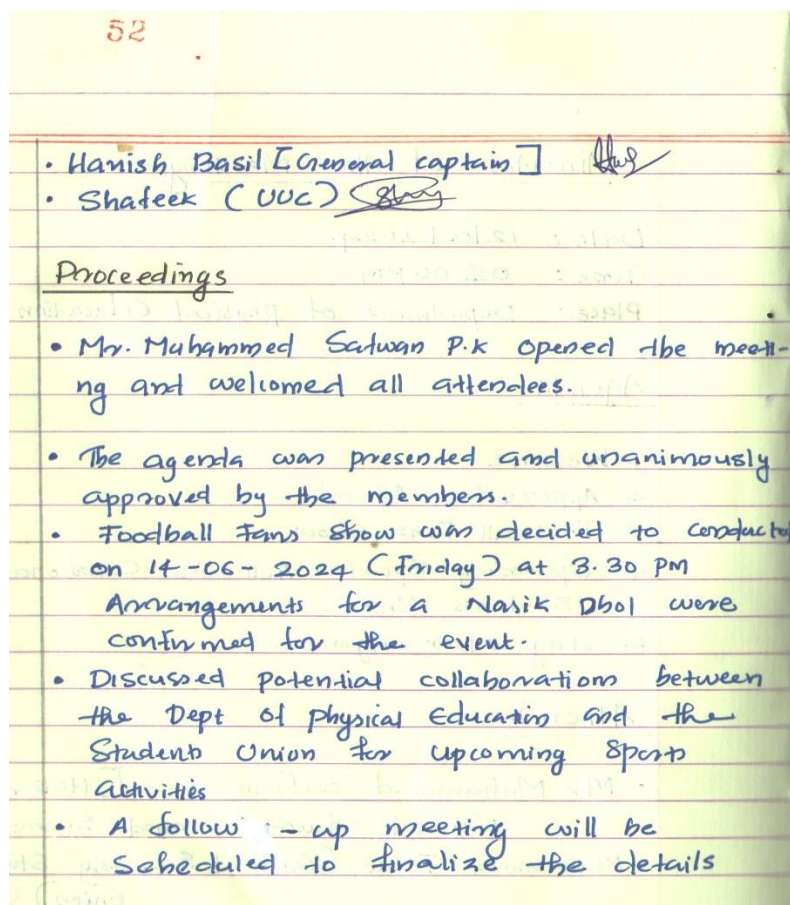 52
• Hanish Basil [General captain]
• Shafeek (UUC)
Proceedings
• Mr. Muhammed Safwan P.K opened the meeti-
ng and welcomed all attendees.
• The agenda was presented and unanimously
approved by the members.
• Foodball Fans show was decided to conducted
on 14-06-2024 (Friday) at 3.30 PM
Arrangements for a Nasik Dhol were
confirmed for the event.
• Discussed potential collaborations between
the Dept of Physical Education and the
Students Union for upcoming Sports
activities
• A follow-up meeting will be
Scheduled to finalize the details